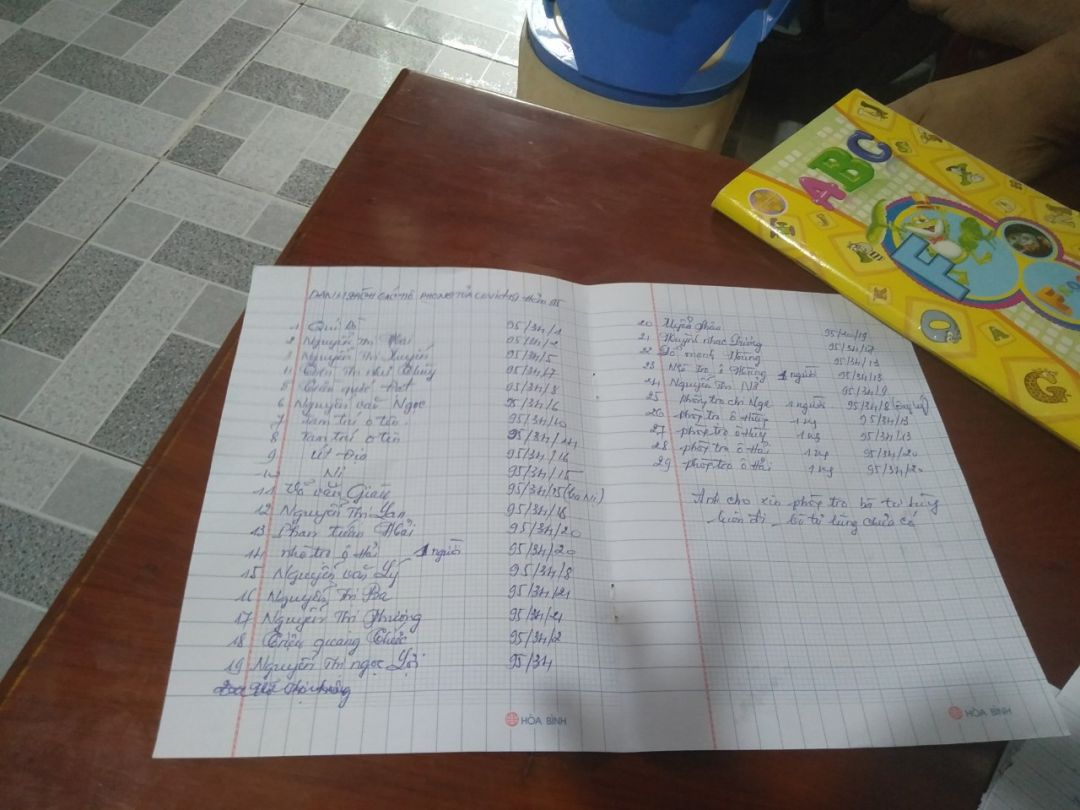 DANH SÁCH CÁC HỘ PHONG TỎA COVID 19
1 95/34/1
2 Nguyễn Thị Hai 95/34/2
3 Nguyễn Thị Xuyến 95/34/5
4 Thị như Thùy 95/34/7
5 quốc Đạt 95/34/8
6 Nguyễn văn Ngọc 95/34/6
7 Tam trú ô tên 95/34/10
8 Tam trú ô tên 95/34/14
9 út Đẹo 95/34/16
10 Ni 95/34/15
11 Võ văn Giàu 95/34/15 (Ba Ni)
12 Nguyễn Thị Vân 95/34/18
13 Phan tuấn Hải 95/34/20
14 nhà trọ ô Hải 1 người 95/34/20
15 Nguyễn văn Lý 95/34/8
16 Nguyễn Thị Ba 95/34/21
17 Nguyễn Thị Phượng 95/34/21
18 Triệu quang Chức 95/34/2
19 Nguyễn Thị ngọc 95/34
20
21 Huỳnh nhạc Dương 95/34/12
22 Đỗ mạnh Hoàng 95/34/13
23 Nhà trọ ô Hoàng 1 người 95/34/13
24 Nguyễn Thị Nở 95/34/9
25 phòng trọ chị Nga 1 người 95/34/8
26 phòng trọ ô Hùng 1 ng 95/34/13
27 phòng trọ ô Hùng 1 ng 95/34/13
28 phòng trọ ô Hải 1 ng 95/34/20
29 phòng trọ ô Hải 1 ng 95/34/20
Anh cho xin phòng trọ bà tư lùng
luôn đi bà tư lùng chưa có
HÒA BÌNH
HÒA BÌNH
ABC
F
O
A
G